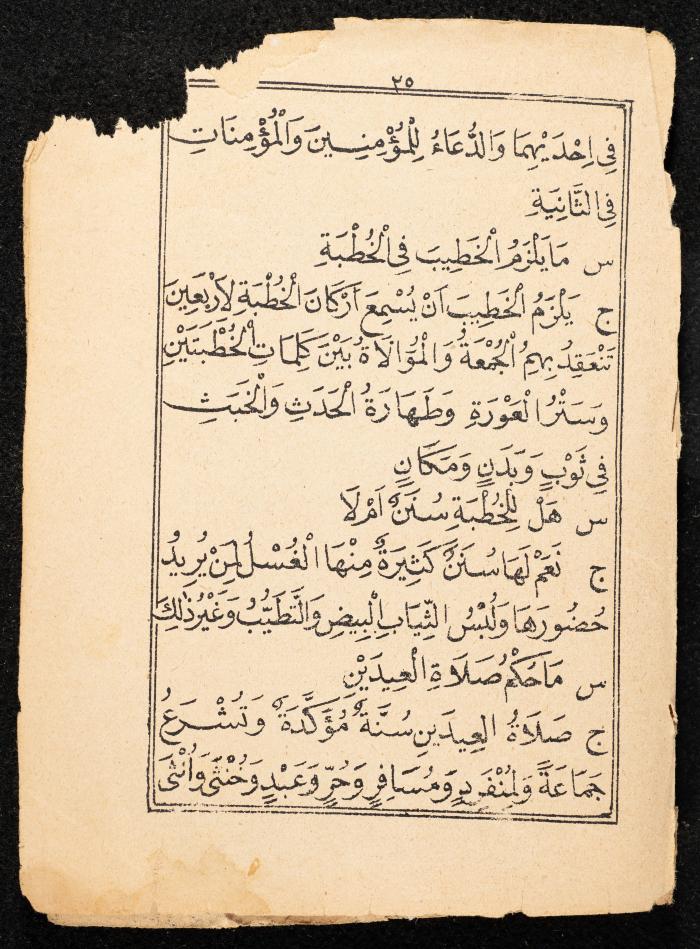 ٢٥
فِي اِحْدَيْهِمَا وَالدُّعَاءُ لِلْمُؤْمِنِينَ وَالْمُؤْمِنَاتِ
فِي الثَّانِيَةِ
س مَا يَلْزَمُ الْخَطِيبَ فِي الْخُطْبَةِ
ج يَلْزَمُ الْخَطِيبَ اَنْ يُسْمِعَ اَرْكَانَ الْخُطْبَةِ لِاَرْبَعِينَ
تَنْعَقِدُ بِهِمُ الْجُمْعَةُ وَالْمُوَالَاةُ بَيْنَ كَلِمَاتِ الْخُطْبَتَيْنِ
وَسَتْرُ الْعَوْرَةِ وَطَهَارَةُ الْحَدَثِ وَالْخَبَثِ
فِي ثَوْبٍ وَبَدَنٍ وَمَكَانٍ
س هَلْ لِلْخُطْبَةِ سُنَنٌ اَمْ لَا
ج نَعَمْ لَهَا سُنَنٌ كَثِيرَةٌ مِنْهَا الْغُسْلُ لِمَنْ يُرِيدُ
حُضُورَهَا وَلُبْسُ الثِّيَابِ الْبِيضِ وَالتَّطَيُّبُ وَغَيْرُ ذٰلِكَ
س مَا حُكْمُ صَلَاةِ الْعِيدَيْنِ
ج صَلَاةُ الْعِيدَيْنِ سُنَّةٌ مُؤَكَّدَةٌ وَتُشْرَعُ
جَمَاعَةً وَلِمُنْفَرِدٍ وَمُسَافِرٍ وَحُرٍّ وَعَبْدٍ وَخُنْثَى وَاُنْثَى